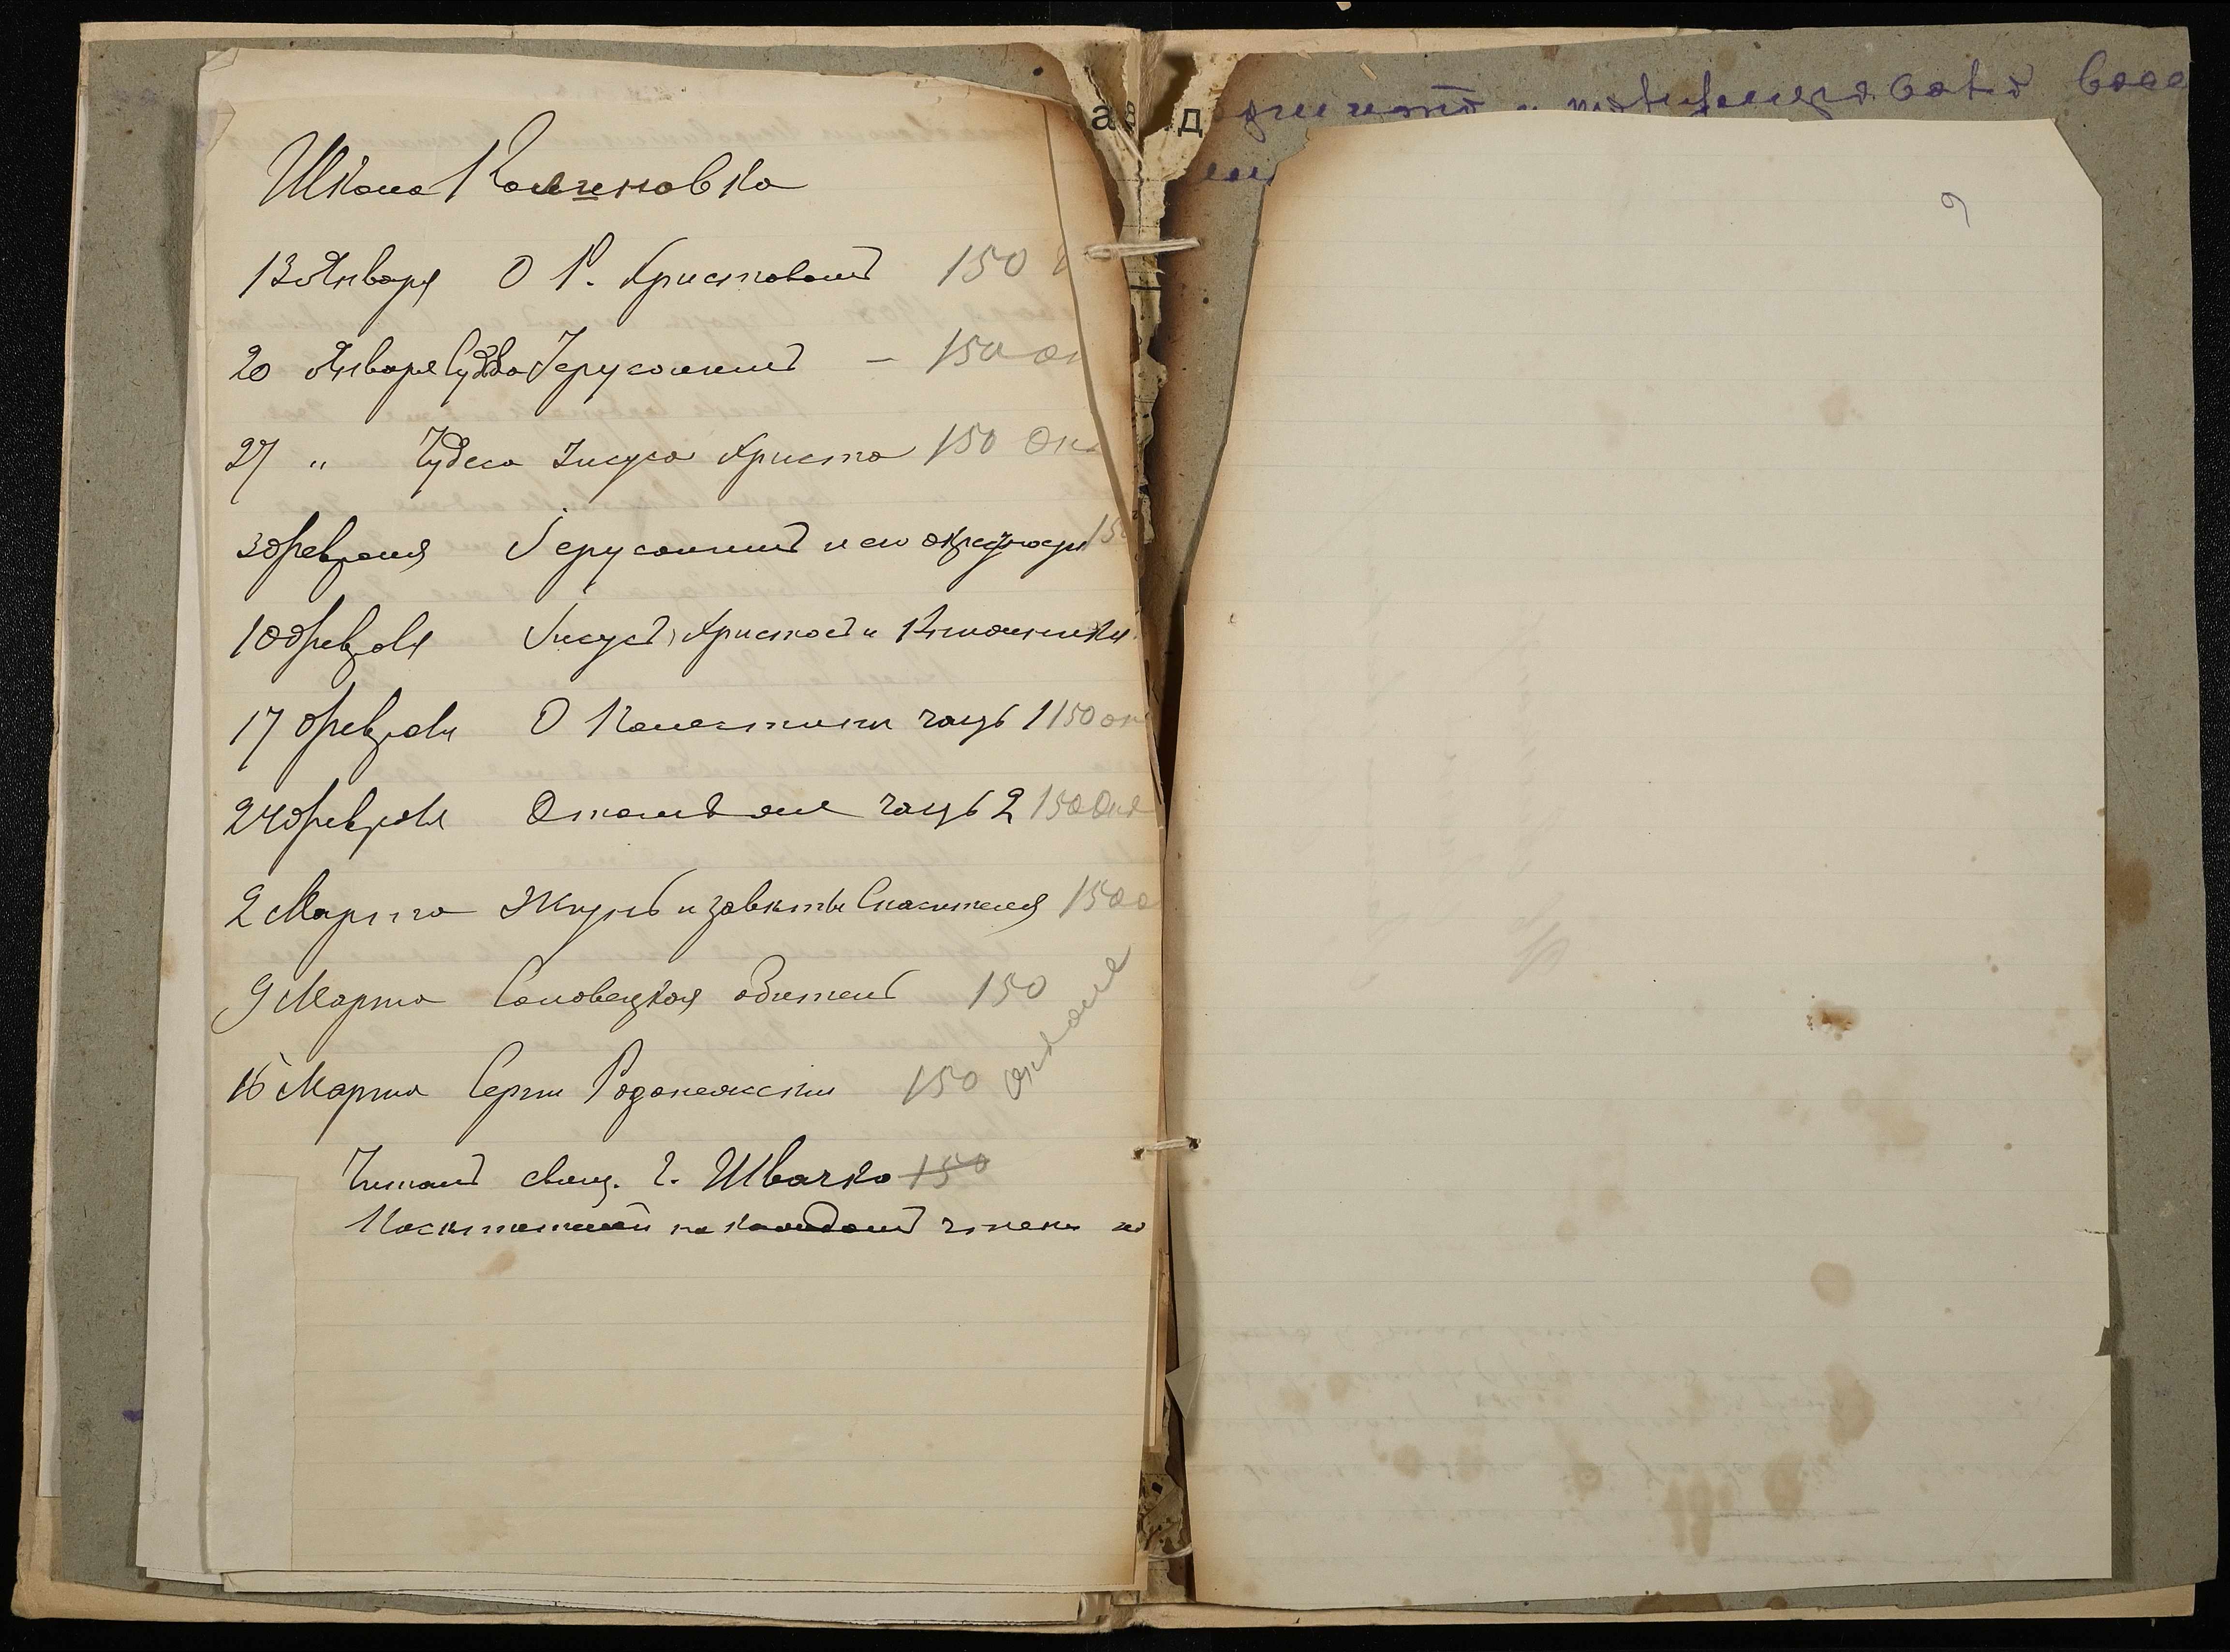 Школа Калиновка
13 Января О Р. Христовомъ 150
20 Января Судьба Іерусалима – 150
27 " Чудеса Іисуса Христа 150
3 Февраля Іерусалимъ и его окрестности 15
10 Февраля Іисусъ Христосъ и
17 Февраля О Палестине часть 1 150
24 Февраля О томъ же часть 2 150
2 Марта Жизнь и заветы Спасителя 150
9 Марта Соловецкая обитель 150
16 Марта Сергій Радонежскій 150
Читалъ свящ. Г. Швачко 150
на каждомъ чтеніи